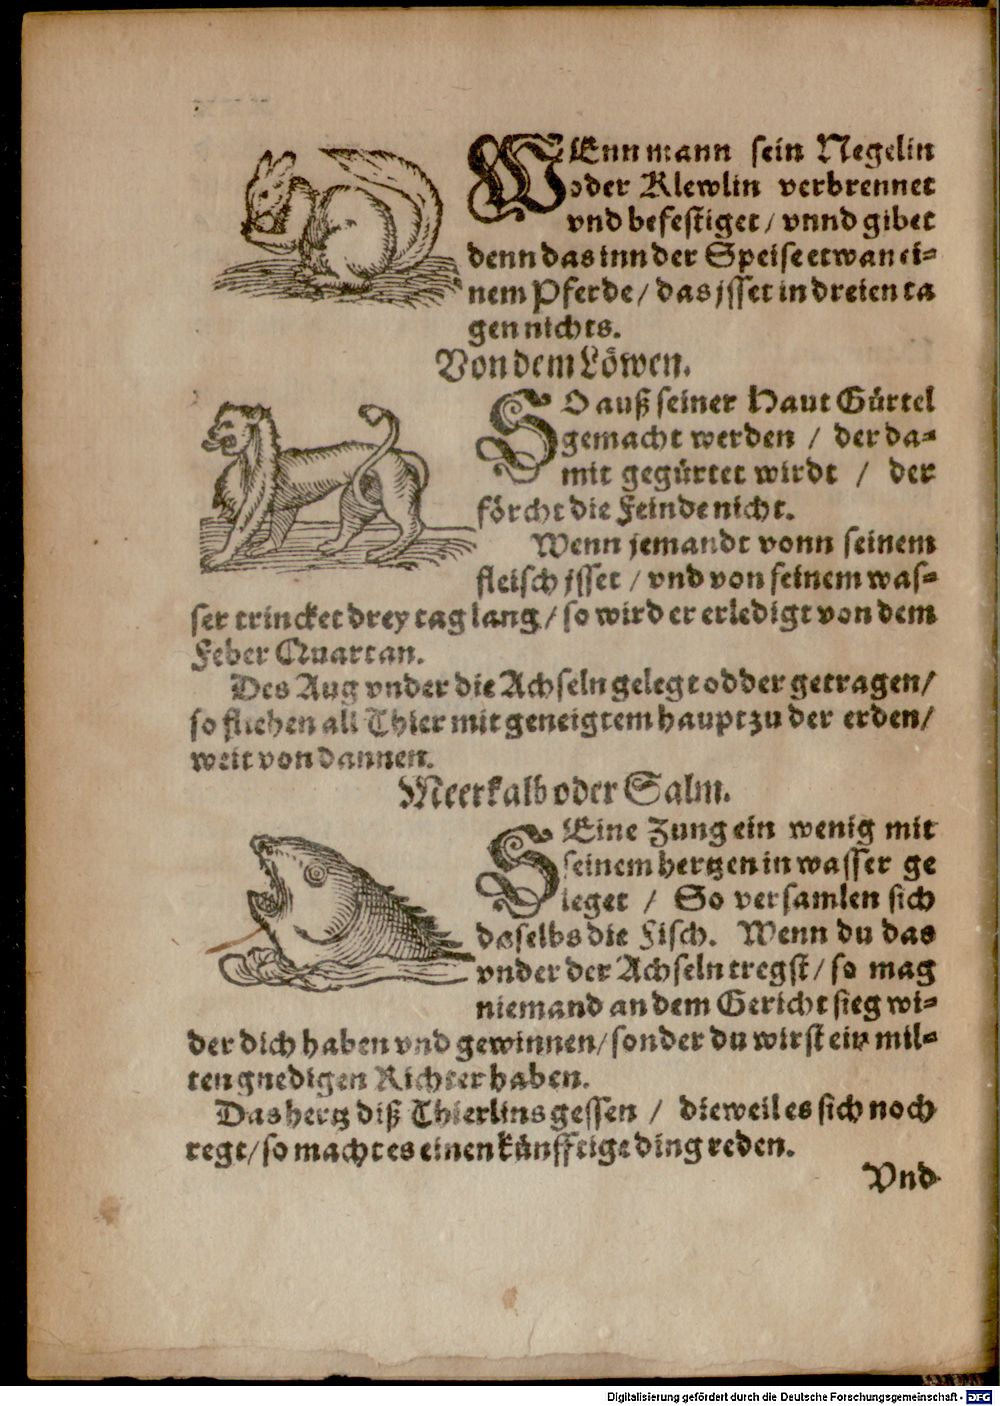 WEnn mann sein Negelin
oder Klewlin verbrennet
vnd befestiget / vnnd gibet
denn das inn der Speise etwan ei-
nem Pferde / das jsset in dreien ta
gen nichts.
Von dem Löwen.
SO auß seiner Haut Gürtel
gemacht werden / der da-
mit gegürtet wirdt / der
förcht die Feinde nicht.
Wenn jemandt vonn seinem
fleisch jsset / vnd von seinem was-
ser trincket drey tag lang / so wird er erledigt von dem
Feber Quartan.
Des Aug vnder die Achseln gelegt odder getragen /
so fliehen all Thier mit geneigtem haupt zu der erden /
weit von dannen.
Meerkalb oder Salm.
SEine Zung ein wenig mit
seinem hertzen in wasser ge
leget / So versamlen sich
daselbs die Fisch. Wenn du das
vnder der Achseln tregst / so mag
niemand an dem Gericht sieg wi-
der dich haben vnd gewinnen / sonder du wirst ein mil-
ten gnedigen Richter haben.
Das hertz diß Thierlins gessen / dieweil es sich noch
regt / so macht es einen künfftige ding reden.
Vnd
Digitalisierung gefördert durch die Deutsche Forschungsgemeinschaft - DFG